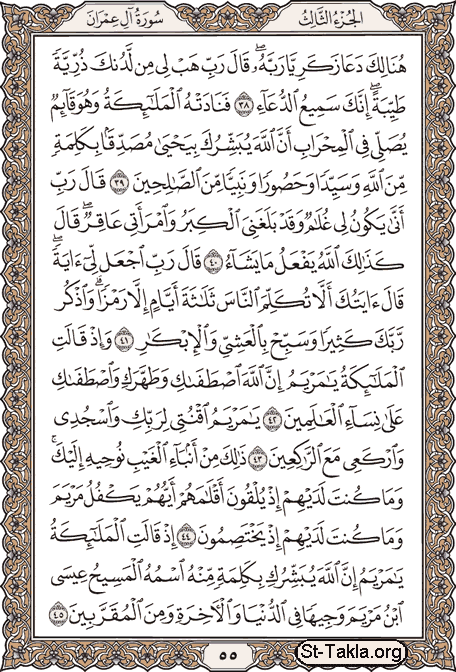 الجزء الثالث
سورة آل عمران
هُنَالِكَ دَعَا زَكَرِيَّا رَبَّهُۥۖ قَالَ رَبِّ هَبْ لِى مِن لَّدُنكَ ذُرِّيَّةً
طَيِّبَةًۖ إِنَّكَ سَمِيعُ ٱلدُّعَآءِ ٣٨ فَنَادَتْهُ ٱلْمَلَٰٓئِكَةُ وَهُوَ قَآئِمٌ
يُصَلِّى فِى ٱلْمِحْرَابِ أَنَّ ٱللَّهَ يُبَشِّرُكَ بِيَحْيَىٰ مُصَدِّقًۢا بِكَلِمَةٍ
مِّنَ ٱللَّهِ وَسَيِّدًا وَحَصُورًا وَنَبِيًّا مِّنَ ٱلصَّٰلِحِينَ ٣٩ قَالَ رَبِّ
أَنَّىٰ يَكُونُ لِى غُلَٰمٌ وَقَدْ بَلَغَنِىَ ٱلْكِبَرُ وَٱمْرَأَتِى عَاقِرٌۖ قَالَ
كَذَٰلِكَ ٱللَّهُ يَفْعَلُ مَا يَشَآءُ ٤٠ قَالَ رَبِّ ٱجْعَل لِّىٓ ءَايَةًۖ
قَالَ ءَايَتُكَ أَلَّا تُكَلِّمَ ٱلنَّاسَ ثَلَٰثَةَ أَيَّامٍ إِلَّا رَمْزًاۗ وَٱذْكُر
رَّبَّكَ كَثِيرًا وَسَبِّحْ بِٱلْعَشِىِّ وَٱلْإِبْكَٰرِ ٤١ وَإِذْ قَالَتِ
ٱلْمَلَٰٓئِكَةُ يَٰمَرْيَمُ إِنَّ ٱللَّهَ ٱصْطَفَىٰكِ وَطَهَّرَكِ وَٱصْطَفَىٰكِ
عَلَىٰ نِسَآءِ ٱلْعَٰلَمِينَ ٤٢ يَٰمَرْيَمُ ٱقْنُتِى لِرَبِّكِ وَٱسْجُدِى
وَٱرْكَعِى مَعَ ٱلرَّٰكِعِينَ ٤٣ ذَٰلِكَ مِنْ أَنۢبَآءِ ٱلْغَيْبِ نُوحِيهِ إِلَيْكَۚ
وَمَا كُنتَ لَدَيْهِمْ إِذْ يُلْقُونَ أَقْلَٰمَهُمْ أَيُّهُمْ يَكْفُلُ مَرْيَمَ
وَمَا كُنتَ لَدَيْهِمْ إِذْ يَخْتَصِمُونَ ٤٤ إِذْ قَالَتِ ٱلْمَلَٰٓئِكَةُ
يَٰمَرْيَمُ إِنَّ ٱللَّهَ يُبَشِّرُكِ بِكَلِمَةٍ مِّنْهُ ٱسْمُهُ ٱلْمَسِيحُ عِيسَى
ٱبْنُ مَرْيَمَ وَجِيهًا فِى ٱلدُّنْيَا وَٱلْءَاخِرَةِ وَمِنَ ٱلْمُقَرَّبِينَ ٤٥
٥٥
St-Takla.org